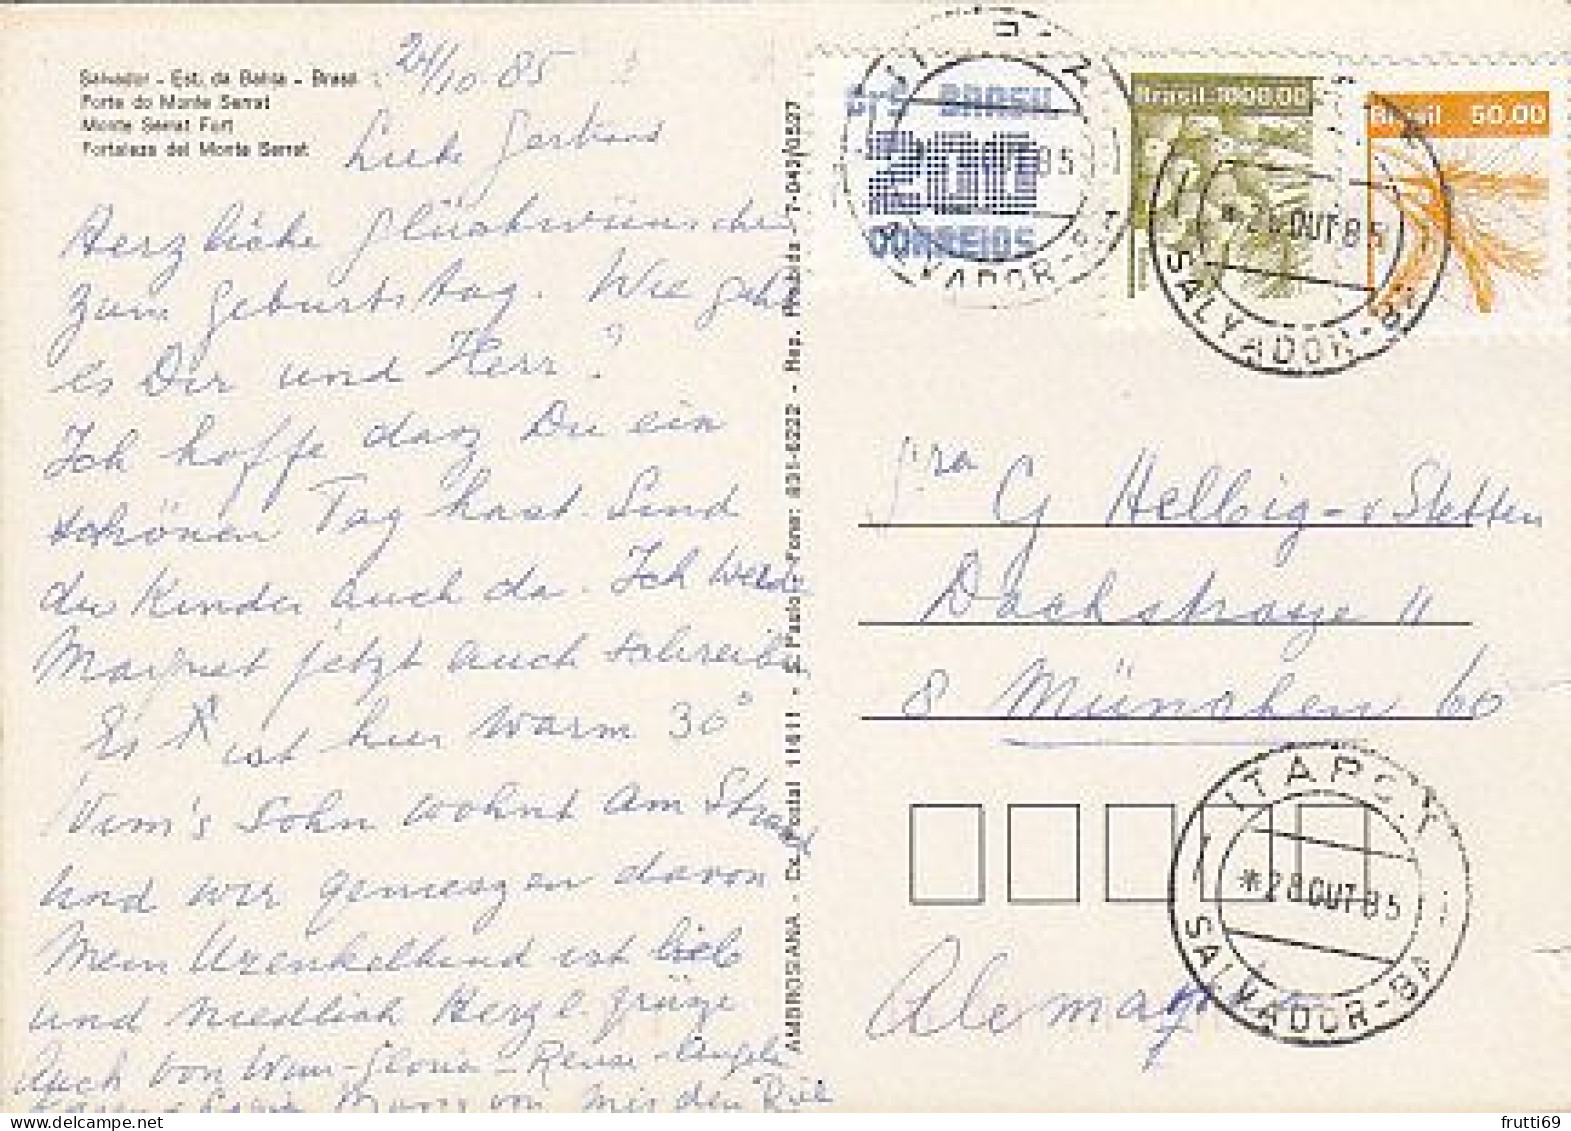 Salvador - Est. da Bahia - Brasil
Forte do Monte Serrat
Monte Serrat Fort
Fortaleza del Monte Serrat
24/10.85
Herzliche Glückwünsche
zum Geburtstag. Wie geht
es Dir und Herr?
Ich hoffe dasz Du ein
schönen Tag hast. Sind
die Kinder auch da. Ich werde
Margret jetzt auch schreiben
Es ist hier warm 30°
Wim's Sohn wohnt am Strand
und wir genieszen davon
Mein Urenkelkind ist lieb
und niedlich Herzl. Grüze
Auch von Wim - Gloria -
von mir den
AMBROSIANA - Cx. Postal 11611 - S. Paulo - Fone: 831-6222 - Rep. Proibida 7-043/0597
BRASIL
200
CORREIOS
SALVADOR-BA
Brasil 1000,00
* 28 OUT 85
SALVADOR-BA
Brasil 50,00
Sra G Helbig-v Stetten
Dachstrasze 11
8 München 60
ITAPOY
*28 OUT 85
SALVADOR-BA
Alemanha
frutti69